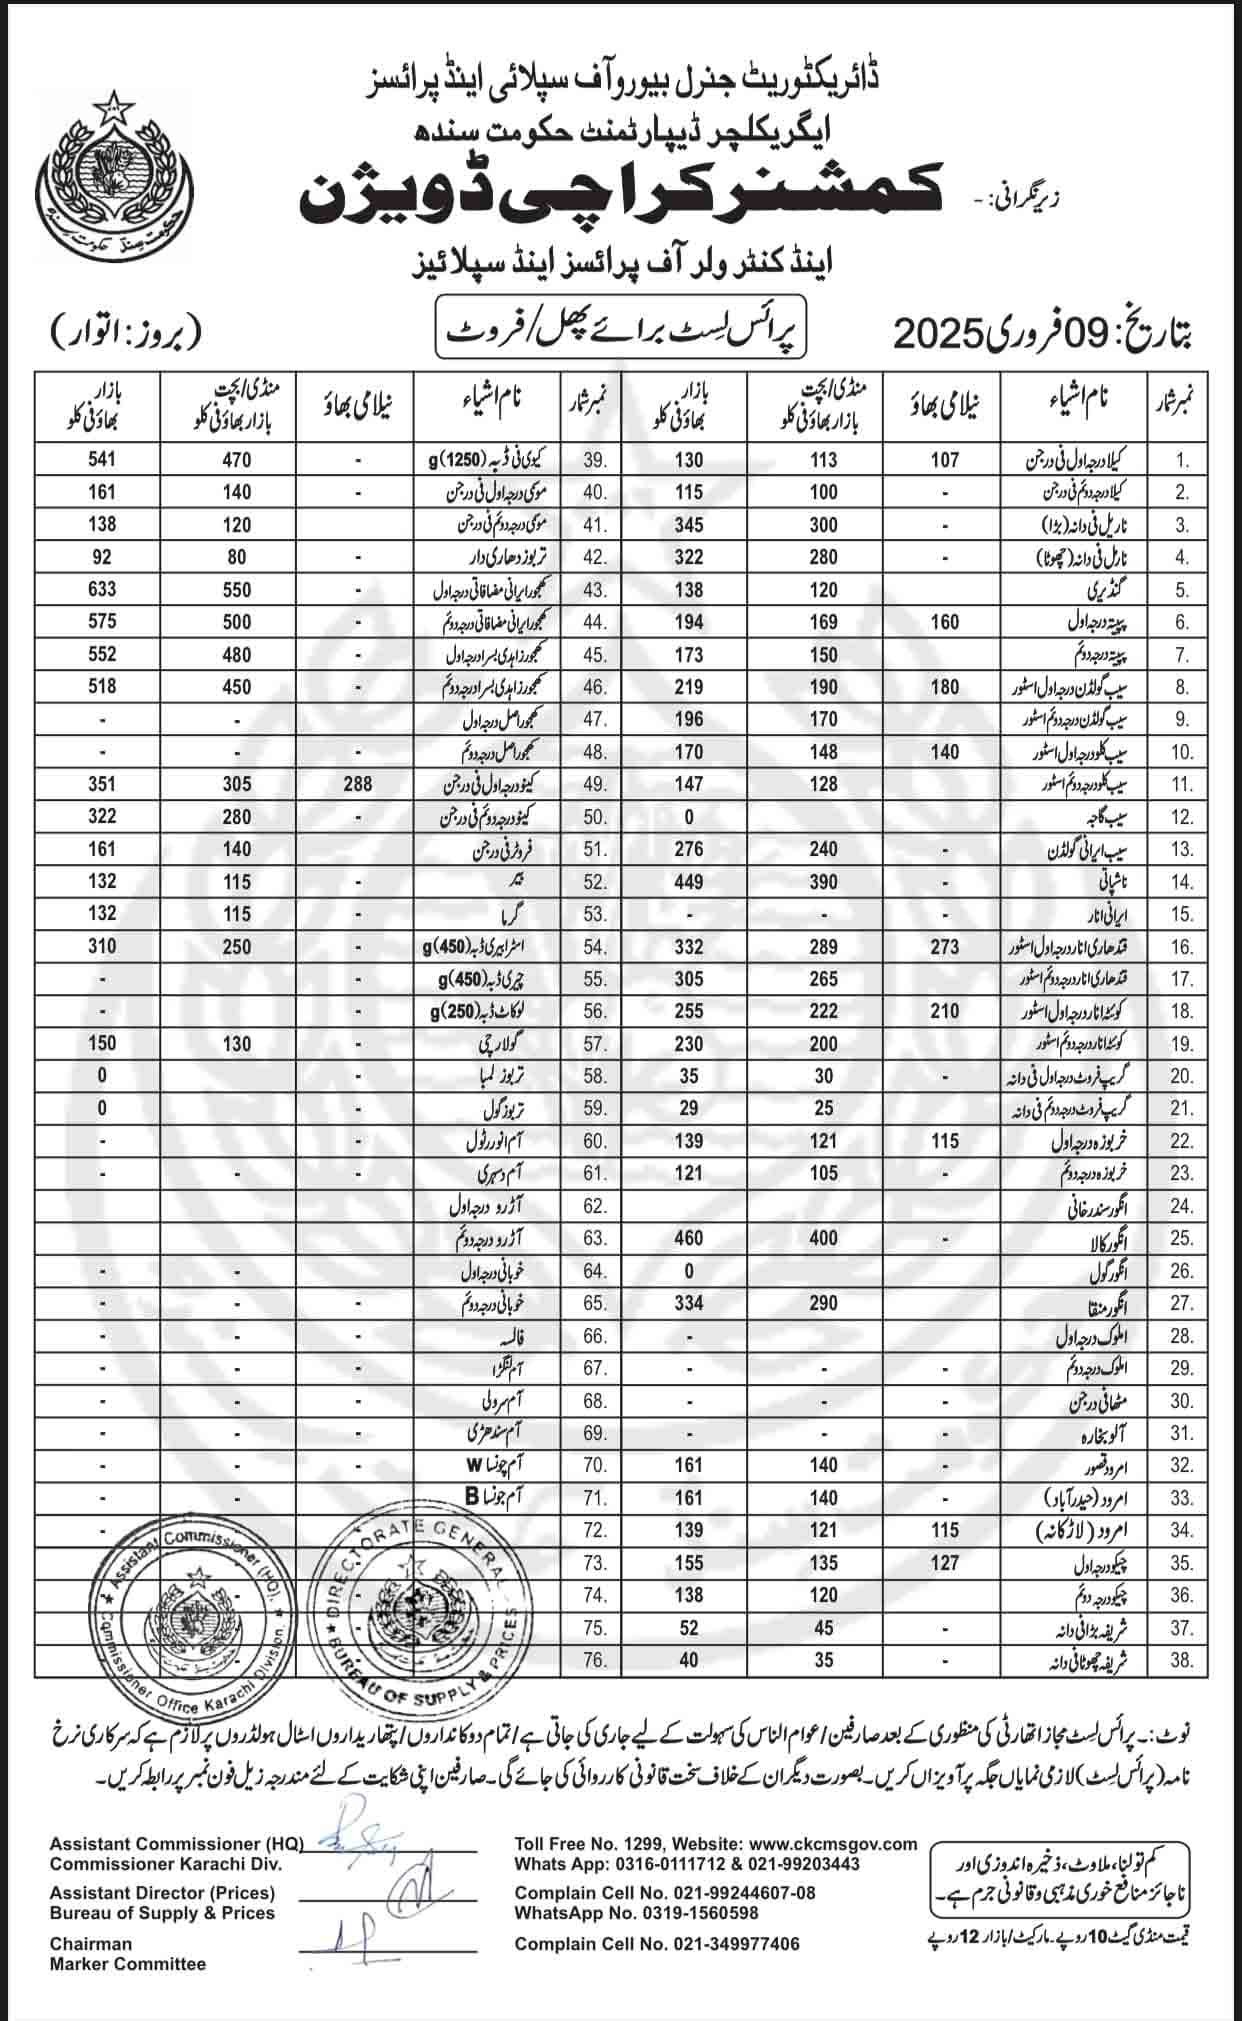 ڈائریکٹوریٹ جنرل بیورو آف سپلائی اینڈ پرائسز
ایگریکلچر ڈیپارٹمنٹ حکومت سندھ
زیر نگرانی: - کمشنر کراچی ڈویژن
اینڈ کنٹرولر آف پرائسز اینڈ سپلائیز
حکومت سندھ
بتاریخ: 09 فروری 2025 پرائس لسٹ برائے پھل/فروٹ (بروز: اتوار)
نمبر شمار نام اشیاء نیلامی بھاؤ منڈی/بچت بازار بھاؤ فی کلو بازار بھاؤ فی کلو نمبر شمار نام اشیاء نیلامی بھاؤ منڈی/بچت بازار بھاؤ فی کلو بازار بھاؤ فی کلو
1. کیلا درجہ اول فی درجن 107 113 130 39. کیوی فی ڈبہ (1250)g - 470 541
2. کیلا درجہ دوئم فی درجن - 100 115 40. موسمی درجہ اول فی درجن - 140 161
3. ناریل فی دانہ (بڑا) - 300 345 41. موسمی درجہ دوئم فی درجن - 120 138
4. نارل فی دانہ (چھوٹا) - 280 322 42. تربوز دھاری دار - 80 92
5. گنڈیری 120 138 43. کھجور ایرانی مضافاتی درجہ اول - 550 633
6. پپیتہ درجہ اول 160 169 194 44. کھجور ایرانی مضافاتی درجہ دوئم - 500 575
7. پپیتہ درجہ دوئم 150 173 45. کھجور زاہدی بسرا درجہ اول - 480 552
8. سیب گولڈن درجہ اول اسٹور 180 190 219 46. کھجور زاہدی بسرا درجہ دوئم - 450 518
9. سیب گولڈن درجہ دوئم اسٹور 170 196 47. کھجور اصل درجہ اول - -
10. سیب کلو درجہ اول اسٹور 140 148 170 48. کھجور اصل درجہ دوئم - - -
11. سیب کلو درجہ دوئم اسٹور 128 147 49. کینو درجہ اول فی درجن 288 305 351
12. سیب گاجہ 0 50. کینو درجہ دوئم فی درجن - 280 322
13. سیب ایرانی گولڈن - 240 276 51. فروٹر فی درجن - 140 161
14. ناشپاتی - 390 449 52. بیر - 115 132
15. ایرانی انار - - - 53. گرما - 115 132
16. قندھاری انار درجہ اول اسٹور 273 289 332 54. اسٹرابیری ڈبہ (450)g - 250 310
17. قندھاری انار درجہ دوئم اسٹور 265 305 55. چیری ڈبہ (450)g - -
18. کوئٹہ انار درجہ اول اسٹور 210 222 255 56. لوکاٹ ڈبہ (250)g - -
19. کوئٹہ انار درجہ دوئم اسٹور 200 230 57. گولارچی - 130 150
20. گریپ فروٹ درجہ اول فی دانہ - 30 35 58. تربوز لمبا - 0
21. گریپ فروٹ درجہ دوئم فی دانہ - 25 29 59. تربوز گول - 0
22. خربوزہ درجہ اول 115 121 139 60. آم انور رٹول - -
23. خربوزہ درجہ دوئم 105 121 61. آم دسہری - - -
24. انگور سندرخانی 62. آڑو درجہ اول
25. انگور کالا - 400 460 63. آڑو درجہ دوئم
26. انگور گول 0 64. خوبانی درجہ اول - -
27. انگور منقا 290 334 65. خوبانی درجہ دوئم - - -
28. املوک درجہ اول - 66. فالسہ - - -
29. املوک درجہ دوئم - - - 67. آم لنگڑا - - -
30. مٹھا فی درجن - - - 68. آم سرولی - - -
31. آلو بخارہ - - - 69. آم سندھڑی - - -
32. امرود قصور - 140 161 70. آم چونسا W - - -
33. امرود (حیدرآباد) - 140 161 71. آم چونسا B - - -
34. امرود (لاڑکانہ) 115 121 139 72. -
35. چیکو درجہ اول 127 135 155 73.
36. چیکو درجہ دوئم 120 138 74.
37. شریفہ بڑا فی دانہ - 45 52 75.
38. شریفہ چھوٹا فی دانہ - 35 40 76.
Assistant Commissioner (HQ).
Commissioner Office Karachi Division.
DIRECTORATE GENERAL
BUREAU OF SUPPLY & PRICES
نوٹ:۔ پرائس لسٹ مجاز اتھارٹی کی منظوری کے بعد صارفین/عوام الناس کی سہولت کے لیے جاری کی جاتی ہے/تمام دوکانداروں/پتھاریداروں اسٹال ہولڈروں پر لازم ہے کہ سرکاری نرخ
نامہ (پرائس لسٹ) لازمی نمایاں جگہ پر آویزاں کریں۔ بصورت دیگر ان کے خلاف سخت قانونی کارروائی کی جائے گی۔ صارفین اپنی شکایت کے لئے مندرجہ زیل فون نمبر پر رابطہ کریں۔
Assistant Commissioner (HQ)
Commissioner Karachi Div.
Assistant Director (Prices)
Bureau of Supply & Prices
Chairman
Marker Committee
Toll Free No. 1299, Website: www.ckcmsgov.com
Whats App: 0316-0111712 & 021-99203443
Complain Cell No. 021-99244607-08
WhatsApp No. 0319-1560598
Complain Cell No. 021-349977406
کم تولنا، ملاوٹ، ذخیرہ اندوزی اور
ناجائز منافع خوری مذہبی و قانونی جرم ہے۔
قیمت منڈی گیٹ 10 روپے۔ مارکیٹ/بازار 12 روپے